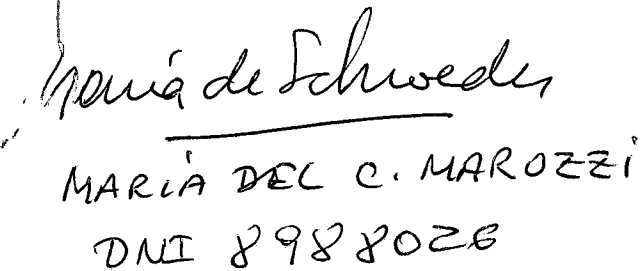 María de Schroeder
MARÍA DEL C. MAROZZI
DNI 8988026